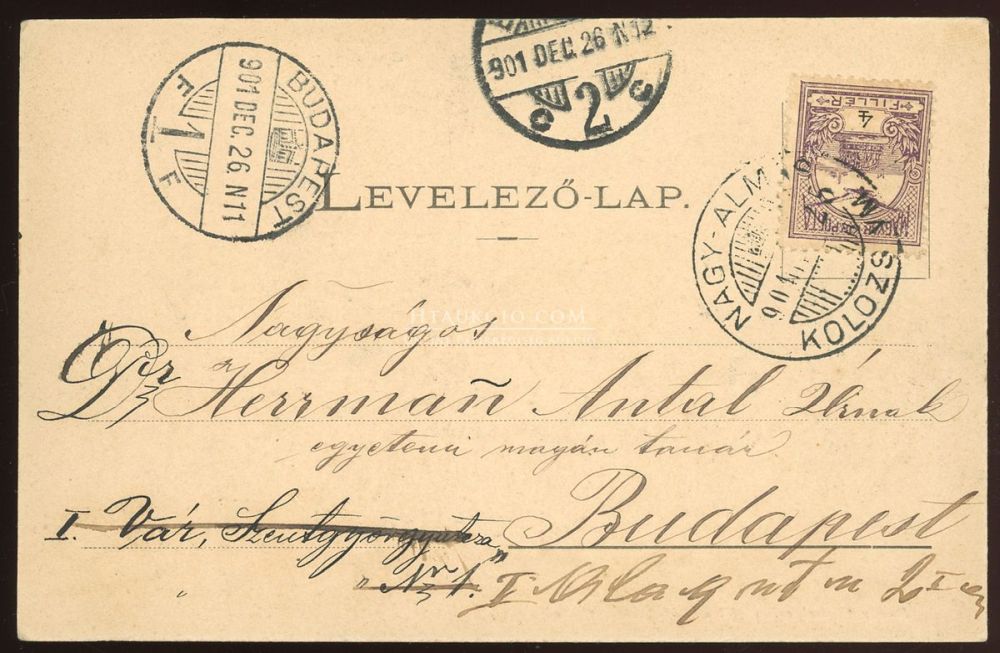 BUDAPEST
901 DEC. 26 N11
F T F
901 DEC. 26 N12
2
4
FILLÉR
MAGYAR KIR. POSTA
NAGY-ALM
KOLOZSM
901
LEVELEZŐ-LAP.
HTAUKCIO.COM
Nagyságos
Dr Herrmañ Antal Úrnak
egyetemi magán tanár
I. Vár, Szentgyörgyutcza
Nr 1.
Budapest
I